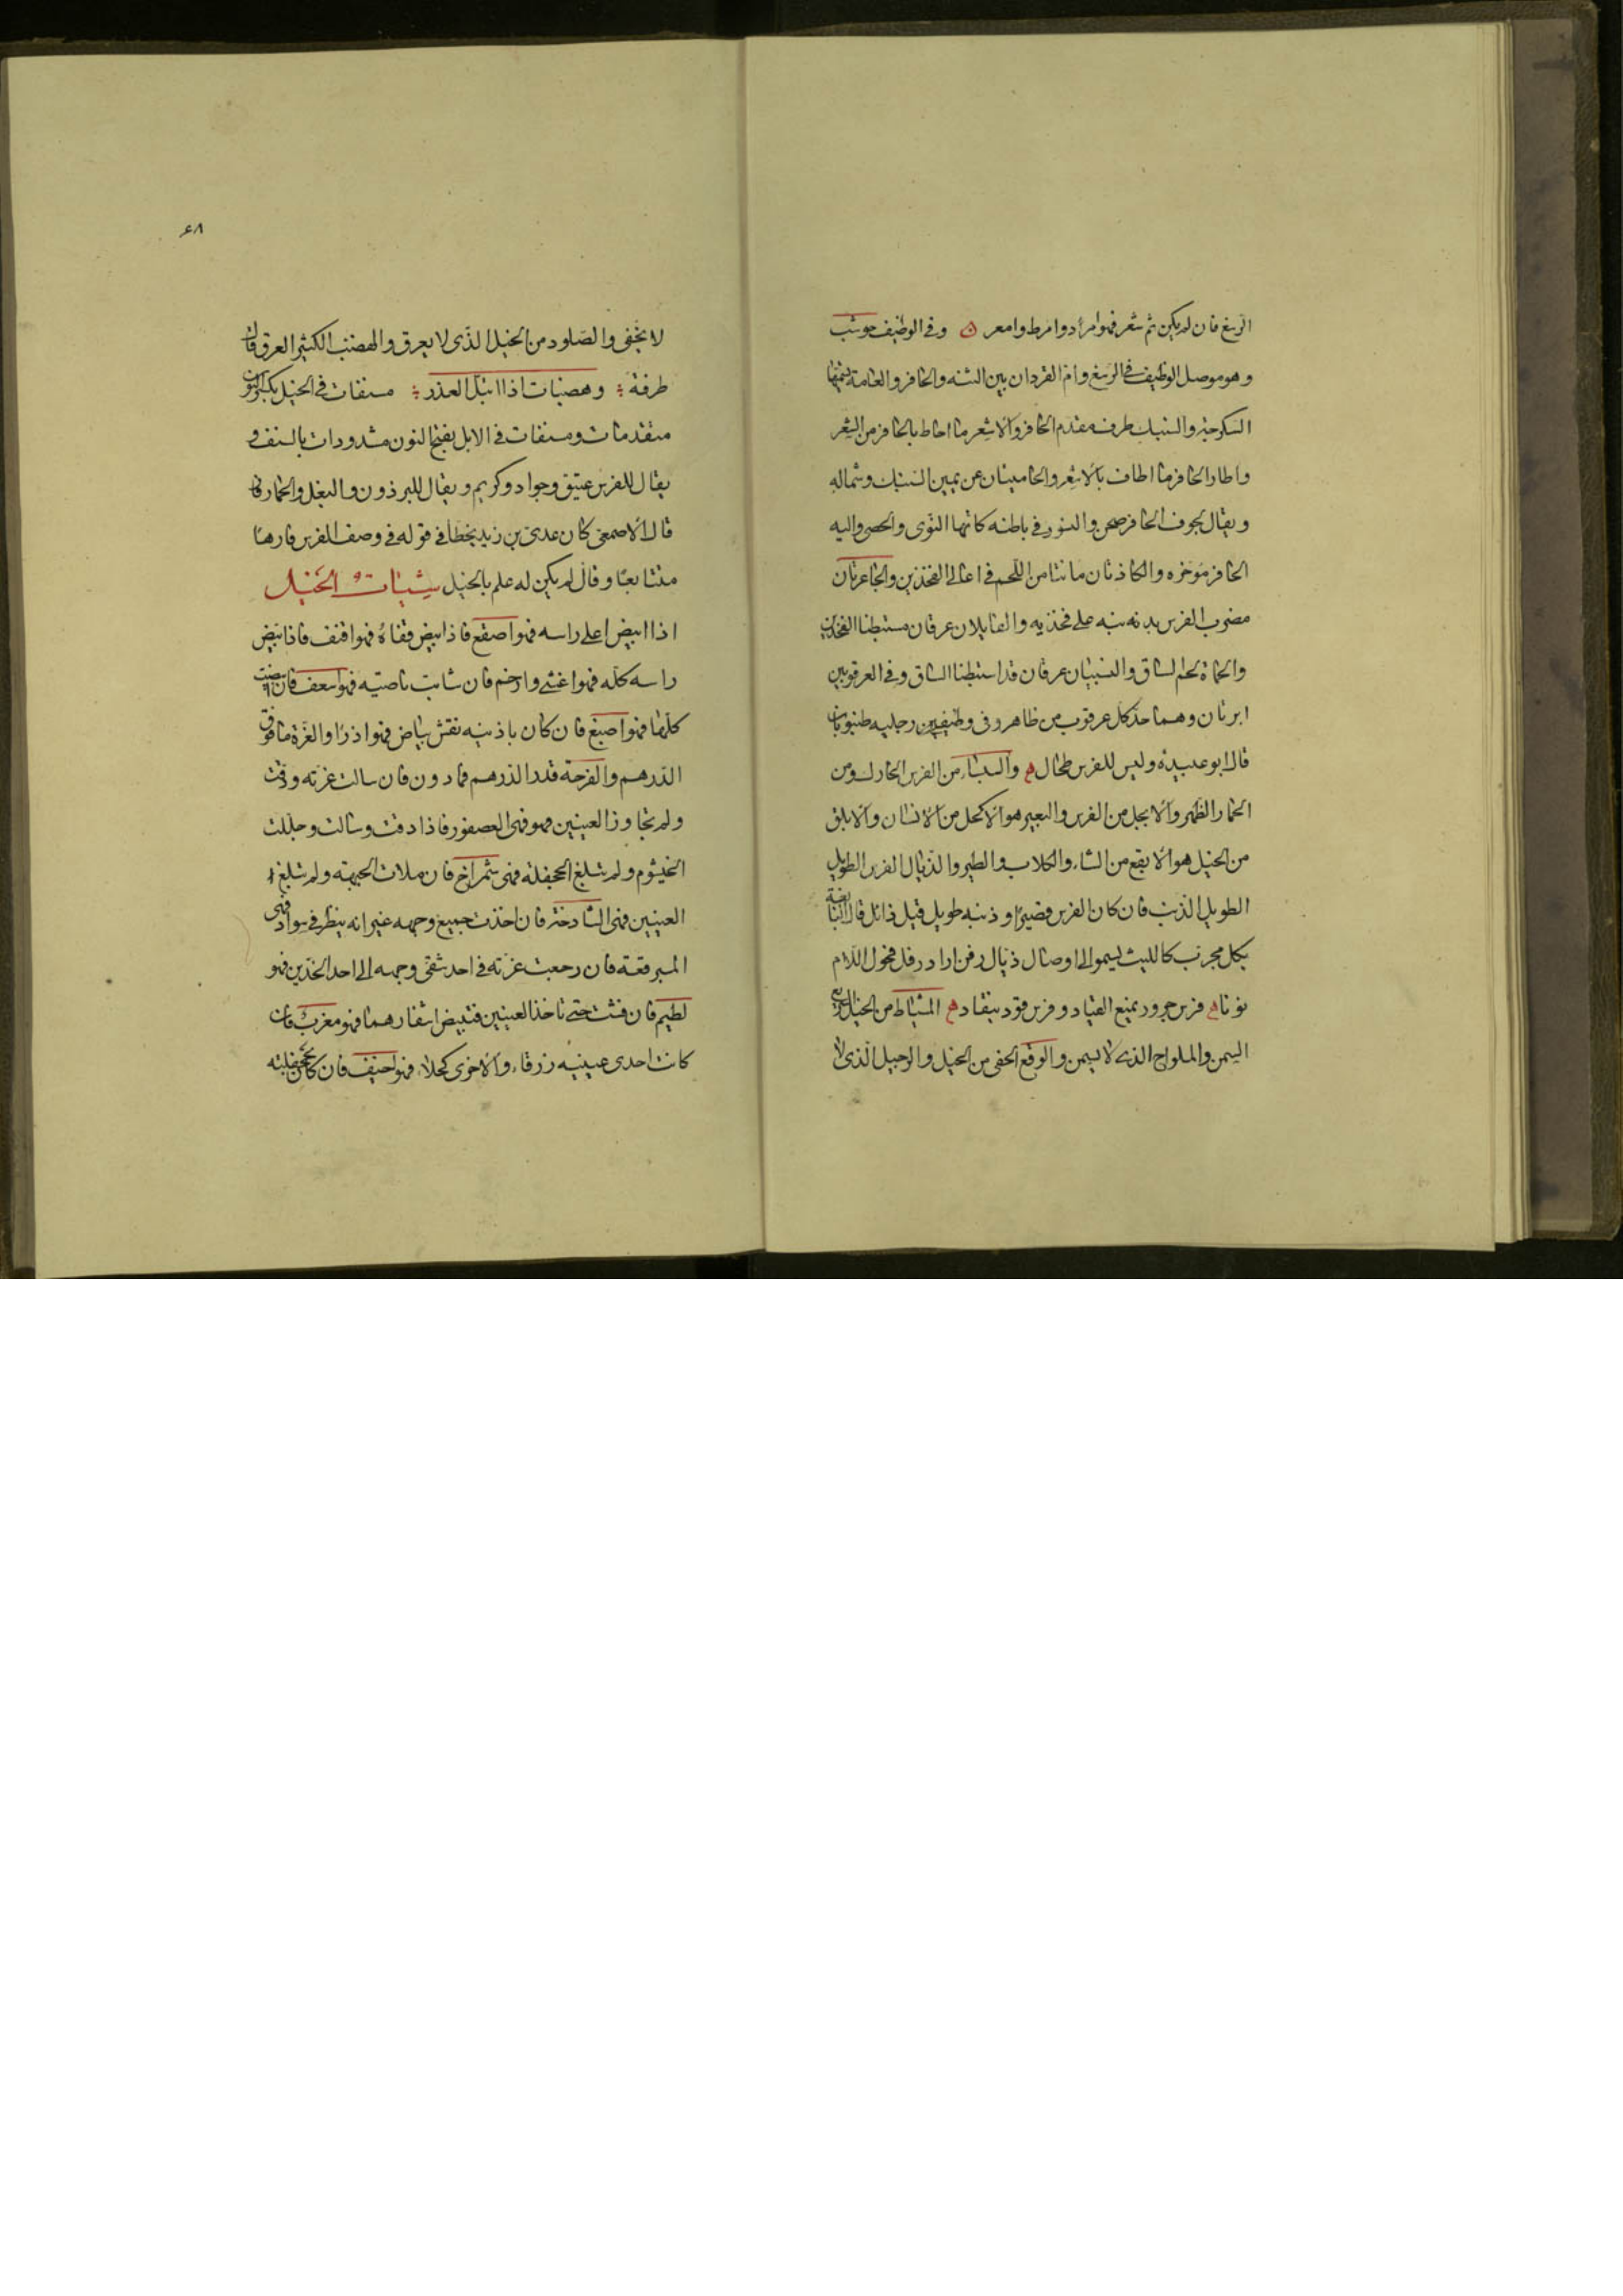 الرسغ فان لم يكن ثم شعر فهو امرد وامرط وامعر ن وفي الوظيف حوشب
وهو موصل الوظيف في الرسغ وام القردان بين الثنه والحافر والعامة يسميها
السكرجة والسنبك طرف مقدم الحافر والاشعر ما احاط بالحافر من الشعر
واطار الحافر ما اطاف بالاشعر والحاميتان عن يمين السنبك وشماله
ويقال لجوف الحافر صحن والنسور في باطنه كانها النوى والحصى واليه
الحافر موخره والكاذتان ما نتا من اللحم في اعالي الفخذين والجاعرتان
مضرب الفرس بذنبه على فخذيه والفايلان عرقان مستبطنا الفخذين
والحماة لحم الساق والنسيان عرقان قد استبطنا الساق وفي العرقوبين
ابرتان وهما حد كل عرقوب من ظاهر وفي وظيفين رجليه ظنبوبان
قال ابو عبيدة وليس للفرس طحال ه والسباء من الفرس الحارك ومن
الحمار الظهر والابجل من الفرس والبعير هو الاكحل من الانسان والابلق
من الخيل هو الابقع من الشاء والكلاب والطير والذيال الفرس الطويل
الطويل الذنب فان كان الفرس قصيرا وذنبه طويل قيل ذائل قال النابغة
بكل مجرب كالليث يسمو الى اوصال ذيال رفن اراد رفل فحول اللام
نونا ه فرس جرور يمنع القياد وفرس قود ينقاد ه المشياط من الخيل السريع
السمن والملواح الذى لا يسمن والوقع الحفى من الخيل والرجيل الذى لا
٤٨
لا يحفى والصلود من الخيل الذى لا يعرق والهضب الكثير العرق قال
طرفة وهضبات اذا ابتل العذر مسنفات في الخيل بكسر النون
متقدمات ومسنفات في الابل بفتح النون مشدودات بالسنف و
يقال للفرس عتيق وجواد وكريم ويقال للبرذون والبغل والحمار فاره
قال الاصمعى كان عدى بن زيد يخطأ في قوله في وصف الفرس فارها
متتابعا وقال لم يكن له علم بالخيل شيات الخيل
اذا ابيض اعلى راسه فهو اصقع فاذا ابيض قفاه فهو اقنف فاذا ابيض
راسه كله فهو اغشى وارخم فان شابت ناصيته فهو اسعف فان ابيضت
كلها فهو اصبغ فان كان باذنيه نقش بياض فهو اذرا والغرة ما فوق
الدرهم والقرحة قدر الدرهم فما دون فان سالت غرته ودقت
ولم تجاوز العينين فهى العصفور فاذا دقت وسالت وجللت
الخيشوم ولم تبلغ الجحفلة فهى شمراخ فان ملات الجبهة ولم تبلغ
العينين فهى الشادخة فان اخذت جميع وجهه غير انه ينظر في سواد فهى
المبرقعة فان رجعت غرته في احد شقى وجهه الى احد الخدين فهو
لطيم فان فشت حتى تاخذ العينين فتبيض اشفارهما فهو مغرب فان
كانت احدى عينيه زرقاء والاخرى كحلاء فهو اخيف فان كان بجحفلته